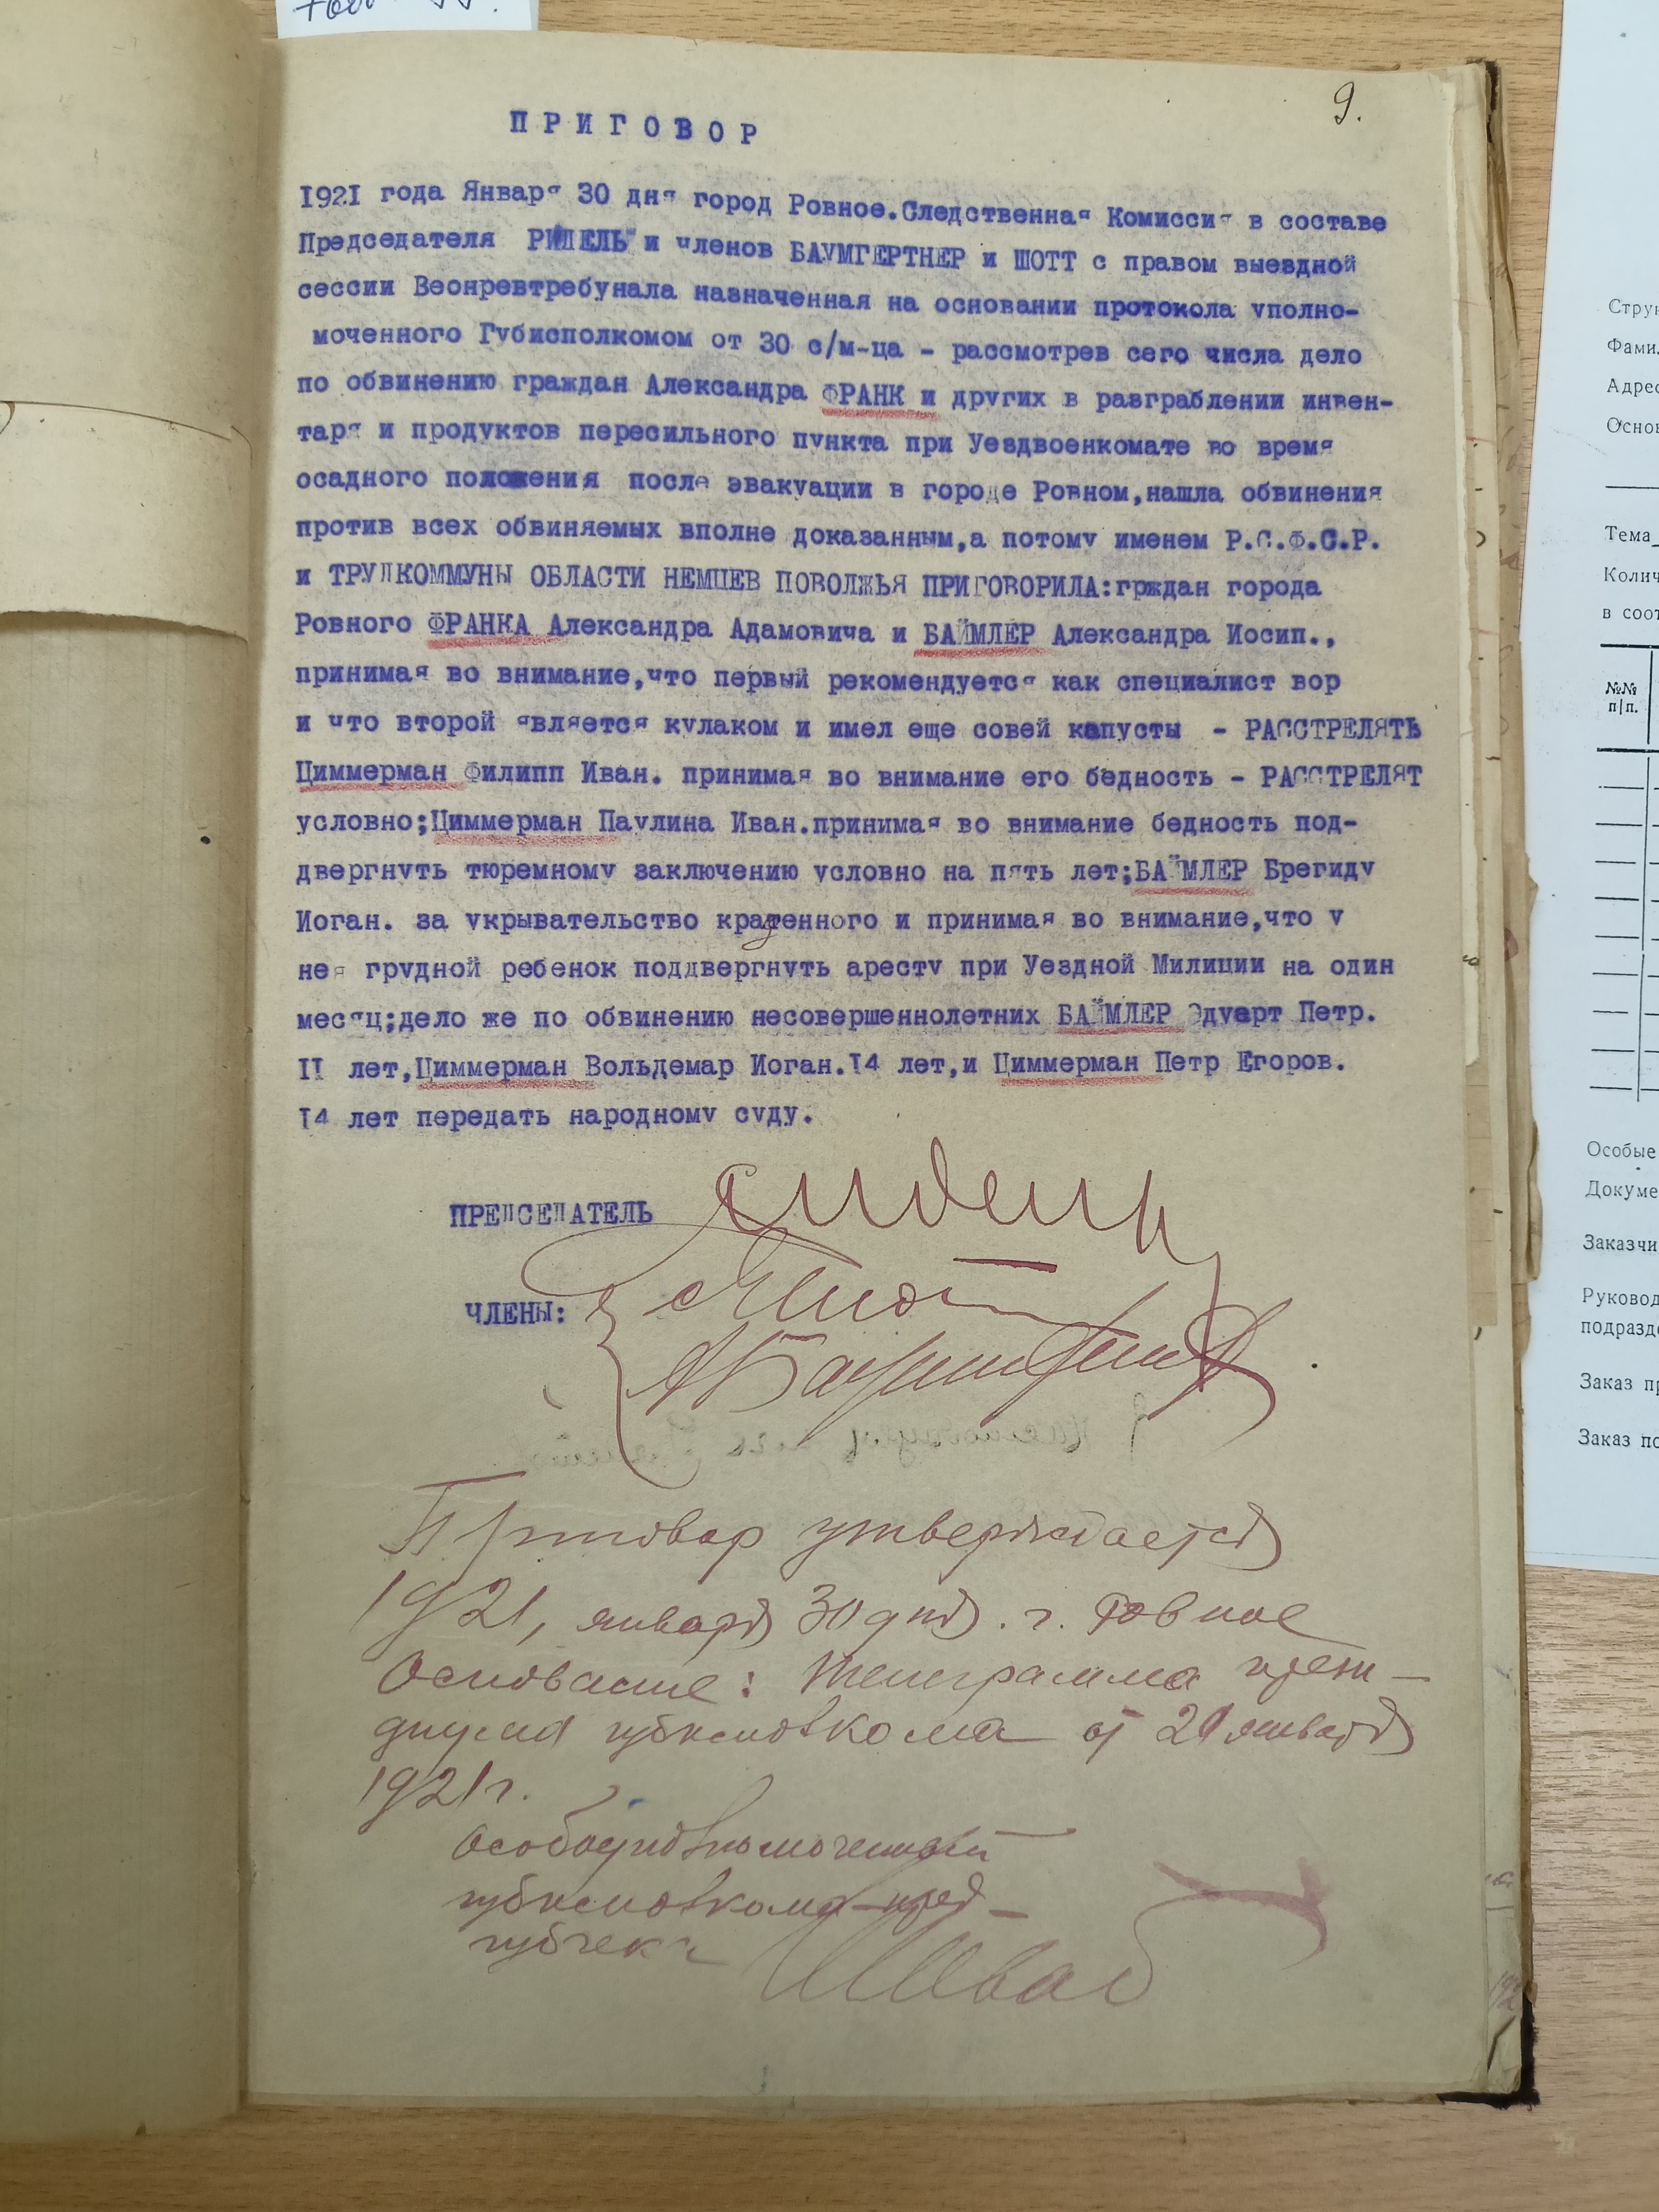 9.
ПРИГОВОР
1921 года Января 30 дня город Ровное.Следственная Комиссия в составе
Председателя РИДЕЛЬ и членов БАУМГЕРТНЕР и ШОТТ с правом выездной
сессии Веонревтребунала назначенная на основании протокола уполно-
моченного Губисполкомом от 30 с/м-ца - рассмотрев сего числа дело
по обвинению граждан Александра ФРАНК и других в разграблении инвен-
таря и продуктов пересильного пункта при Уездвоенкомате во время
осадного положения после эвакуации в городе Ровном,нашла обвинения
против всех обвиняемых вполне доказанным,а потому именем Р.С.Ф.С.Р.
и ТРУДКОММУНЫ ОБЛАСТИ НЕМЦЕВ ПОВОЛЖЬЯ ПРИГОВОРИЛА:грждан города
Ровного ФРАНКА Александра Адамовича и БАЙМЛЕР Александра Иосип.,
принимая во внимание,что первый рекомендуется как специалист вор
и что второй является кулаком и имел еще совей капусты - РАССТРЕЛЯТЬ
Циммерман Филипп Иван. принимая во внимание его бедность - РАССТРЕЛЯТ
условно;Циммерман Паулина Иван.принимая во внимание бедность под-
двергнуть тюремному заключению условно на пять лет;БАЙМЛЕР Брегиду
Иоган. за укрывательство краденного и принимая во внимание,что у
нея грудной ребенок поддвергнуть аресту при Уездной Милиции на один
месяц;дело же по обвинению несовершеннолетних БАЙМЛЕР Эдуарт Петр.
II лет,Циммерман Вольдемар Иоган.I4 лет,и Циммерман Петр Егоров.
I4 лет передать народному суду.
ПРЕДСЕДАТЕЛЬ Ридель
ЧЛЕНЫ: Шотт
АБаумгертнер
Приговор утверждается
1921, января 30 дня. г. Ровное
Основание: Телеграмма през-
диума губисполкома от 29 января
1921 г.
Особоуполномоченный
губисполкома-пред-
губчека Шваб
Фами
Адрес
Тема
Колич
в соот
№№
п/п.
Особые
Докуме
Заказчи
Руковод
подразде
Заказ пр
Заказ по